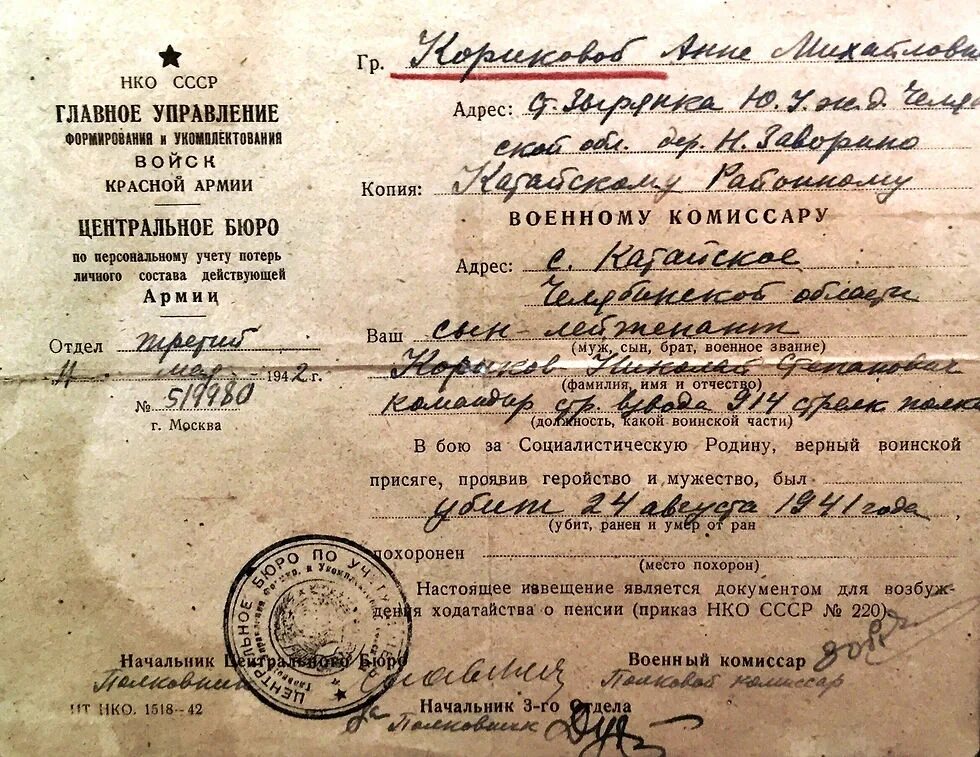 НКО СССР
ГЛАВНОЕ УПРАВЛЕНИЕ
ФОРМИРОВАНИЯ и УКОМПЛЕКТОВАНИЯ
ВОЙСК
КРАСНОЙ АРМИИ
ЦЕНТРАЛЬНОЕ БЮРО
по персональному учету потерь
личного состава действующей
Армии
Отдел третий
11 мая 1942 г.
№ 519980
г. Москва
Гр. Кориковой Анне Михайловн
Адрес: ст. Зырянка Ю. У. ж. д. Челя
ской обл. дер. Н. Заворино
Копия: Катайскому Районному
ВОЕННОМУ КОМИССАРУ
Адрес: с. Катайское
Челябинской области
Ваш сын - лейтенант
(муж, сын, брат, военное звание)
Кориков Николай Степанович
(фамилия, имя и отчество)
командир стр. взвода 914 стрелк полка
(должность, какой воинской части)
В бою за Социалистическую Родину, верный воинской
присяге, проявив геройство и мужество, был
убит 24 августа 1941 года
(убит, ранен и умер от ран
похоронен
(место похорон)
Настоящее извещение является документом для возбуж-
дения ходатайства о пенсии (приказ НКО СССР № 220).
ЦЕНТРАЛЬНОЕ БЮРО ПО УЧЕТУ
Начальник Центрального Бюро
Полковник
Военный комиссар
Полковой комиссар
Начальник 3-го Отдела
Полковник
ЦТ НКО. 1518—42